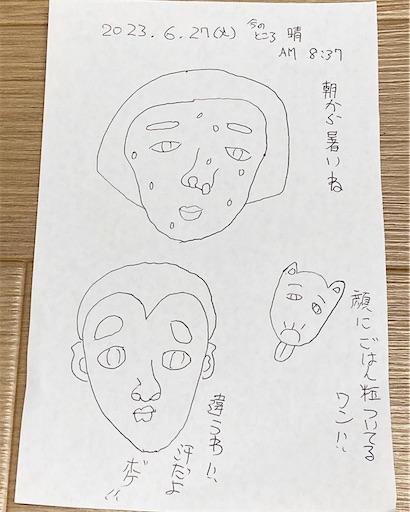 2023.6.27(火) 今のところ 晴
AM 8:37
朝から暑いね
顔にごはん粒ついてる
ワン!!
違うわ!!
汗だよ
ボケ!!